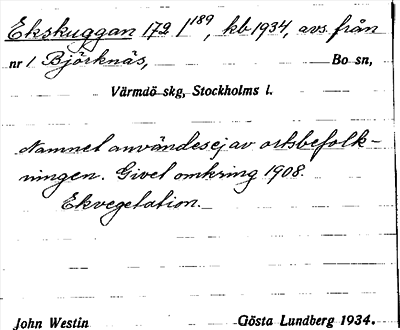 Ekskuggan 17² /¹⁸⁹, kb 1934, avs. från
nr 1 Björknäs, Bo sn,
Värmdö skg, Stockholms l.
Namnet användes ej av ortsbefolk-
ningen. Givet omkring 1908.
Ekvegetation.
John Westin Gösta Lundberg 1934.